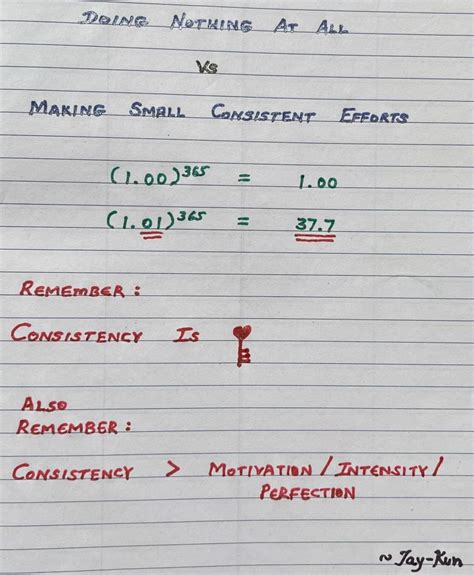 DOING NOTHING AT ALL
VS
MAKING SMALL CONSISTENT EFFORTS
(1.00)³⁶⁵ = 1.00
(1.01)³⁶⁵ = 37.7
REMEMBER :
CONSISTENCY IS
ALSO
REMEMBER :
CONSISTENCY > MOTIVATION / INTENSITY /
PERFECTION
~ Jay-Kun